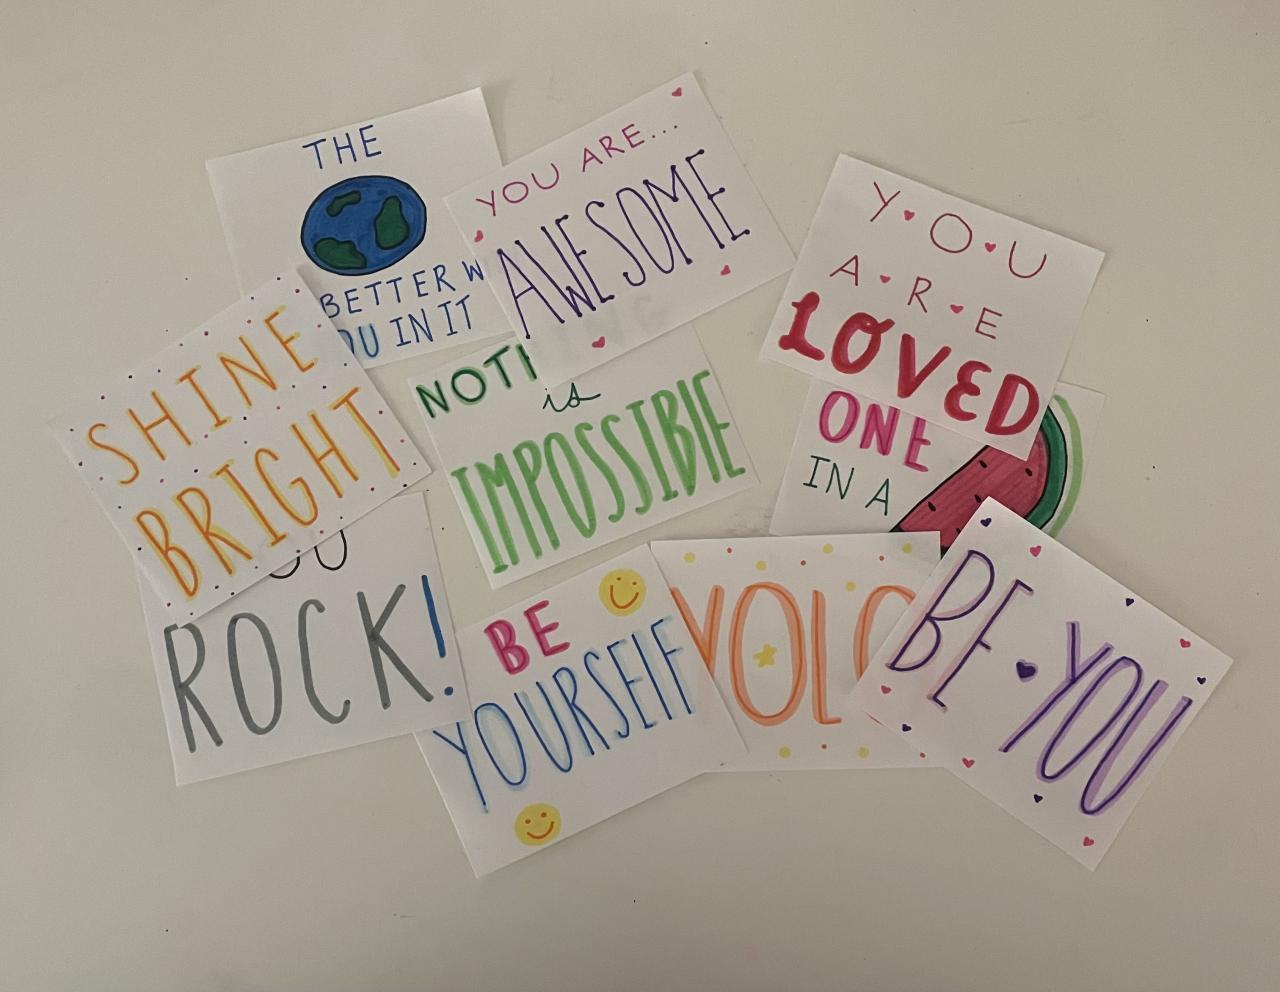 THE
BETTER W
OU IN IT
YOU ARE...
AWESOME
Y O U
A R E
LOVED
SHINE
BRIGHT
NOTH
is
IMPOSSIBLE
ONE
IN A
OU
ROCK!
BE
YOURSELF
YOLO
BE YOU